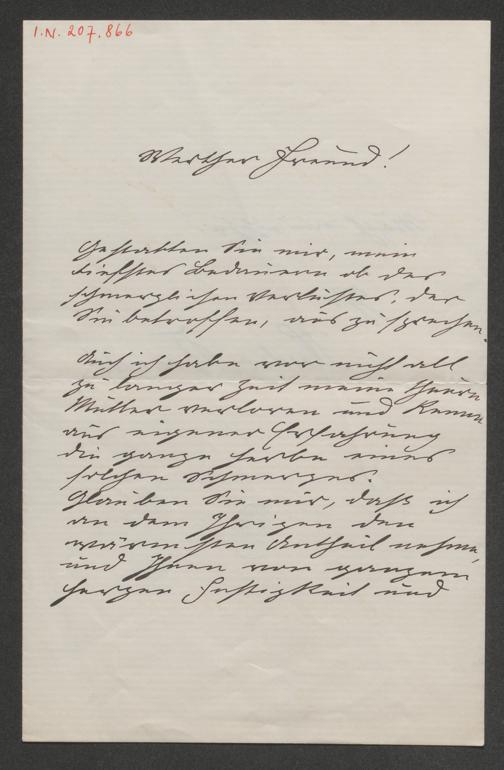 I.N. 207.866
Werther Freund!
Gestatten Sie mir, mein
tiefstes Bedauern ob des
schmerzlichen Verlustes, der
Sie betroffen, aus zu sprechen.
Auch ich habe vor nicht all
zu langer Zeit meine theure
Mutter verloren und kenne
aus eigener Erfahrung
die ganze herbe eines
solchen Schmerzes.
Glauben Sie mir, daß ich
an dem Ihrigen den
wärmsten Antheil nehme,
und Ihnen von ganzem
Herzen Festigkeit und